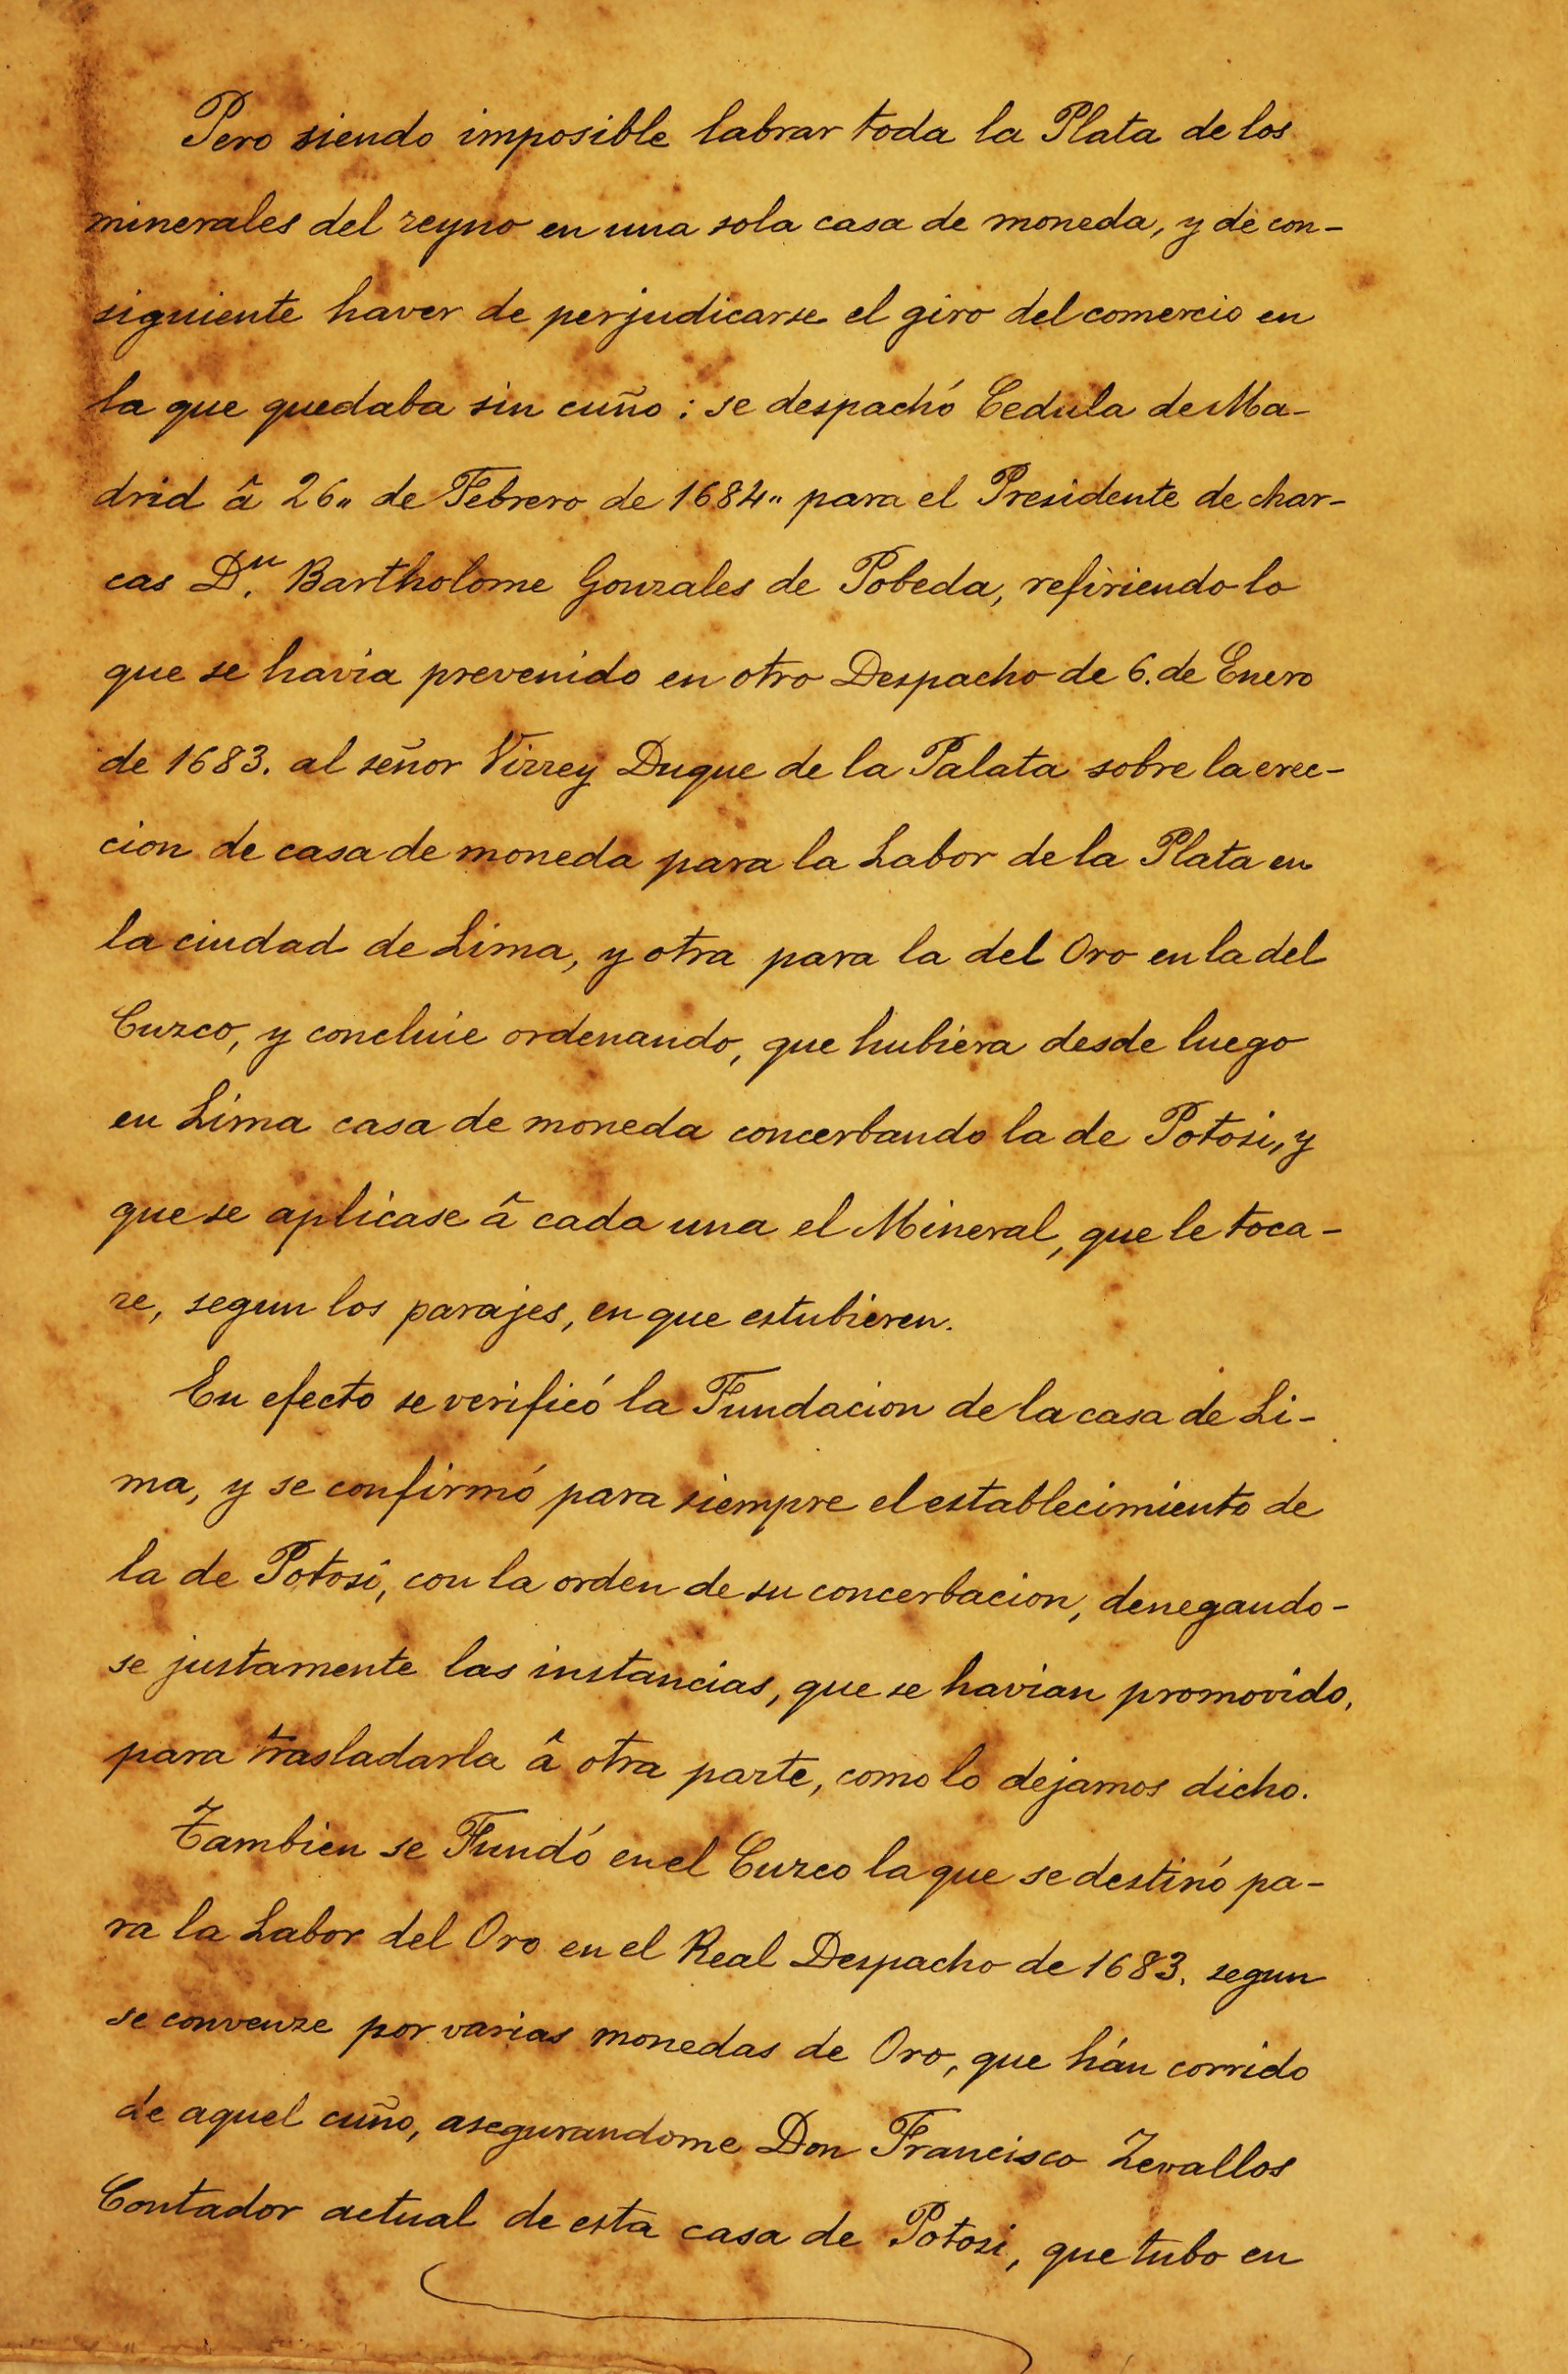 Pero siendo imposible labrar toda la Plata de los
minerales del reyno en una sola casa de moneda, y de con-
siguiente haver de perjudicarse el giro del comercio en
la que quedaba sin cuño: se despachó Cedula de Ma-
drid â 26" de Febrero de 1684" para el Presidente de char-
cas Dn. Bartholome Gonzales de Pobeda, refiriendo lo
que se havia prevenido en otro Despacho de 6. de Enero
de 1683. al señor Virrey Duque de la Palata sobre la erec-
cion de casa de moneda para la Labor de la Plata en
la ciudad de Lima, y otra para la del Oro en la del
Cuzco, y concluie ordenando, que hubiera desde luego
en Lima casa de moneda concerbando la de Potosi, y
que se aplicase â cada una el Mineral, que le toca-
re, segun los parajes, en que estubieren.
En efecto se verificó la Fundacion de la casa de Li-
ma, y se confirmó para siempre el establecimiento de
la de Potosi, con la orden de su concerbacion, denegando-
se justamente las instancias, que se havian promovido,
para trasladarla â otra parte, como lo dejamos dicho.
Tambien se Fundó en el Cuzco la que se destinó pa-
ra la Labor del Oro en el Real Despacho de 1683. segun
se convenze por varias monedas de Oro, que hán corrido
de aquel cuño, asegurandome Don Francisco Zevallos
Contador actual de esta casa de Potosi, que tubo en